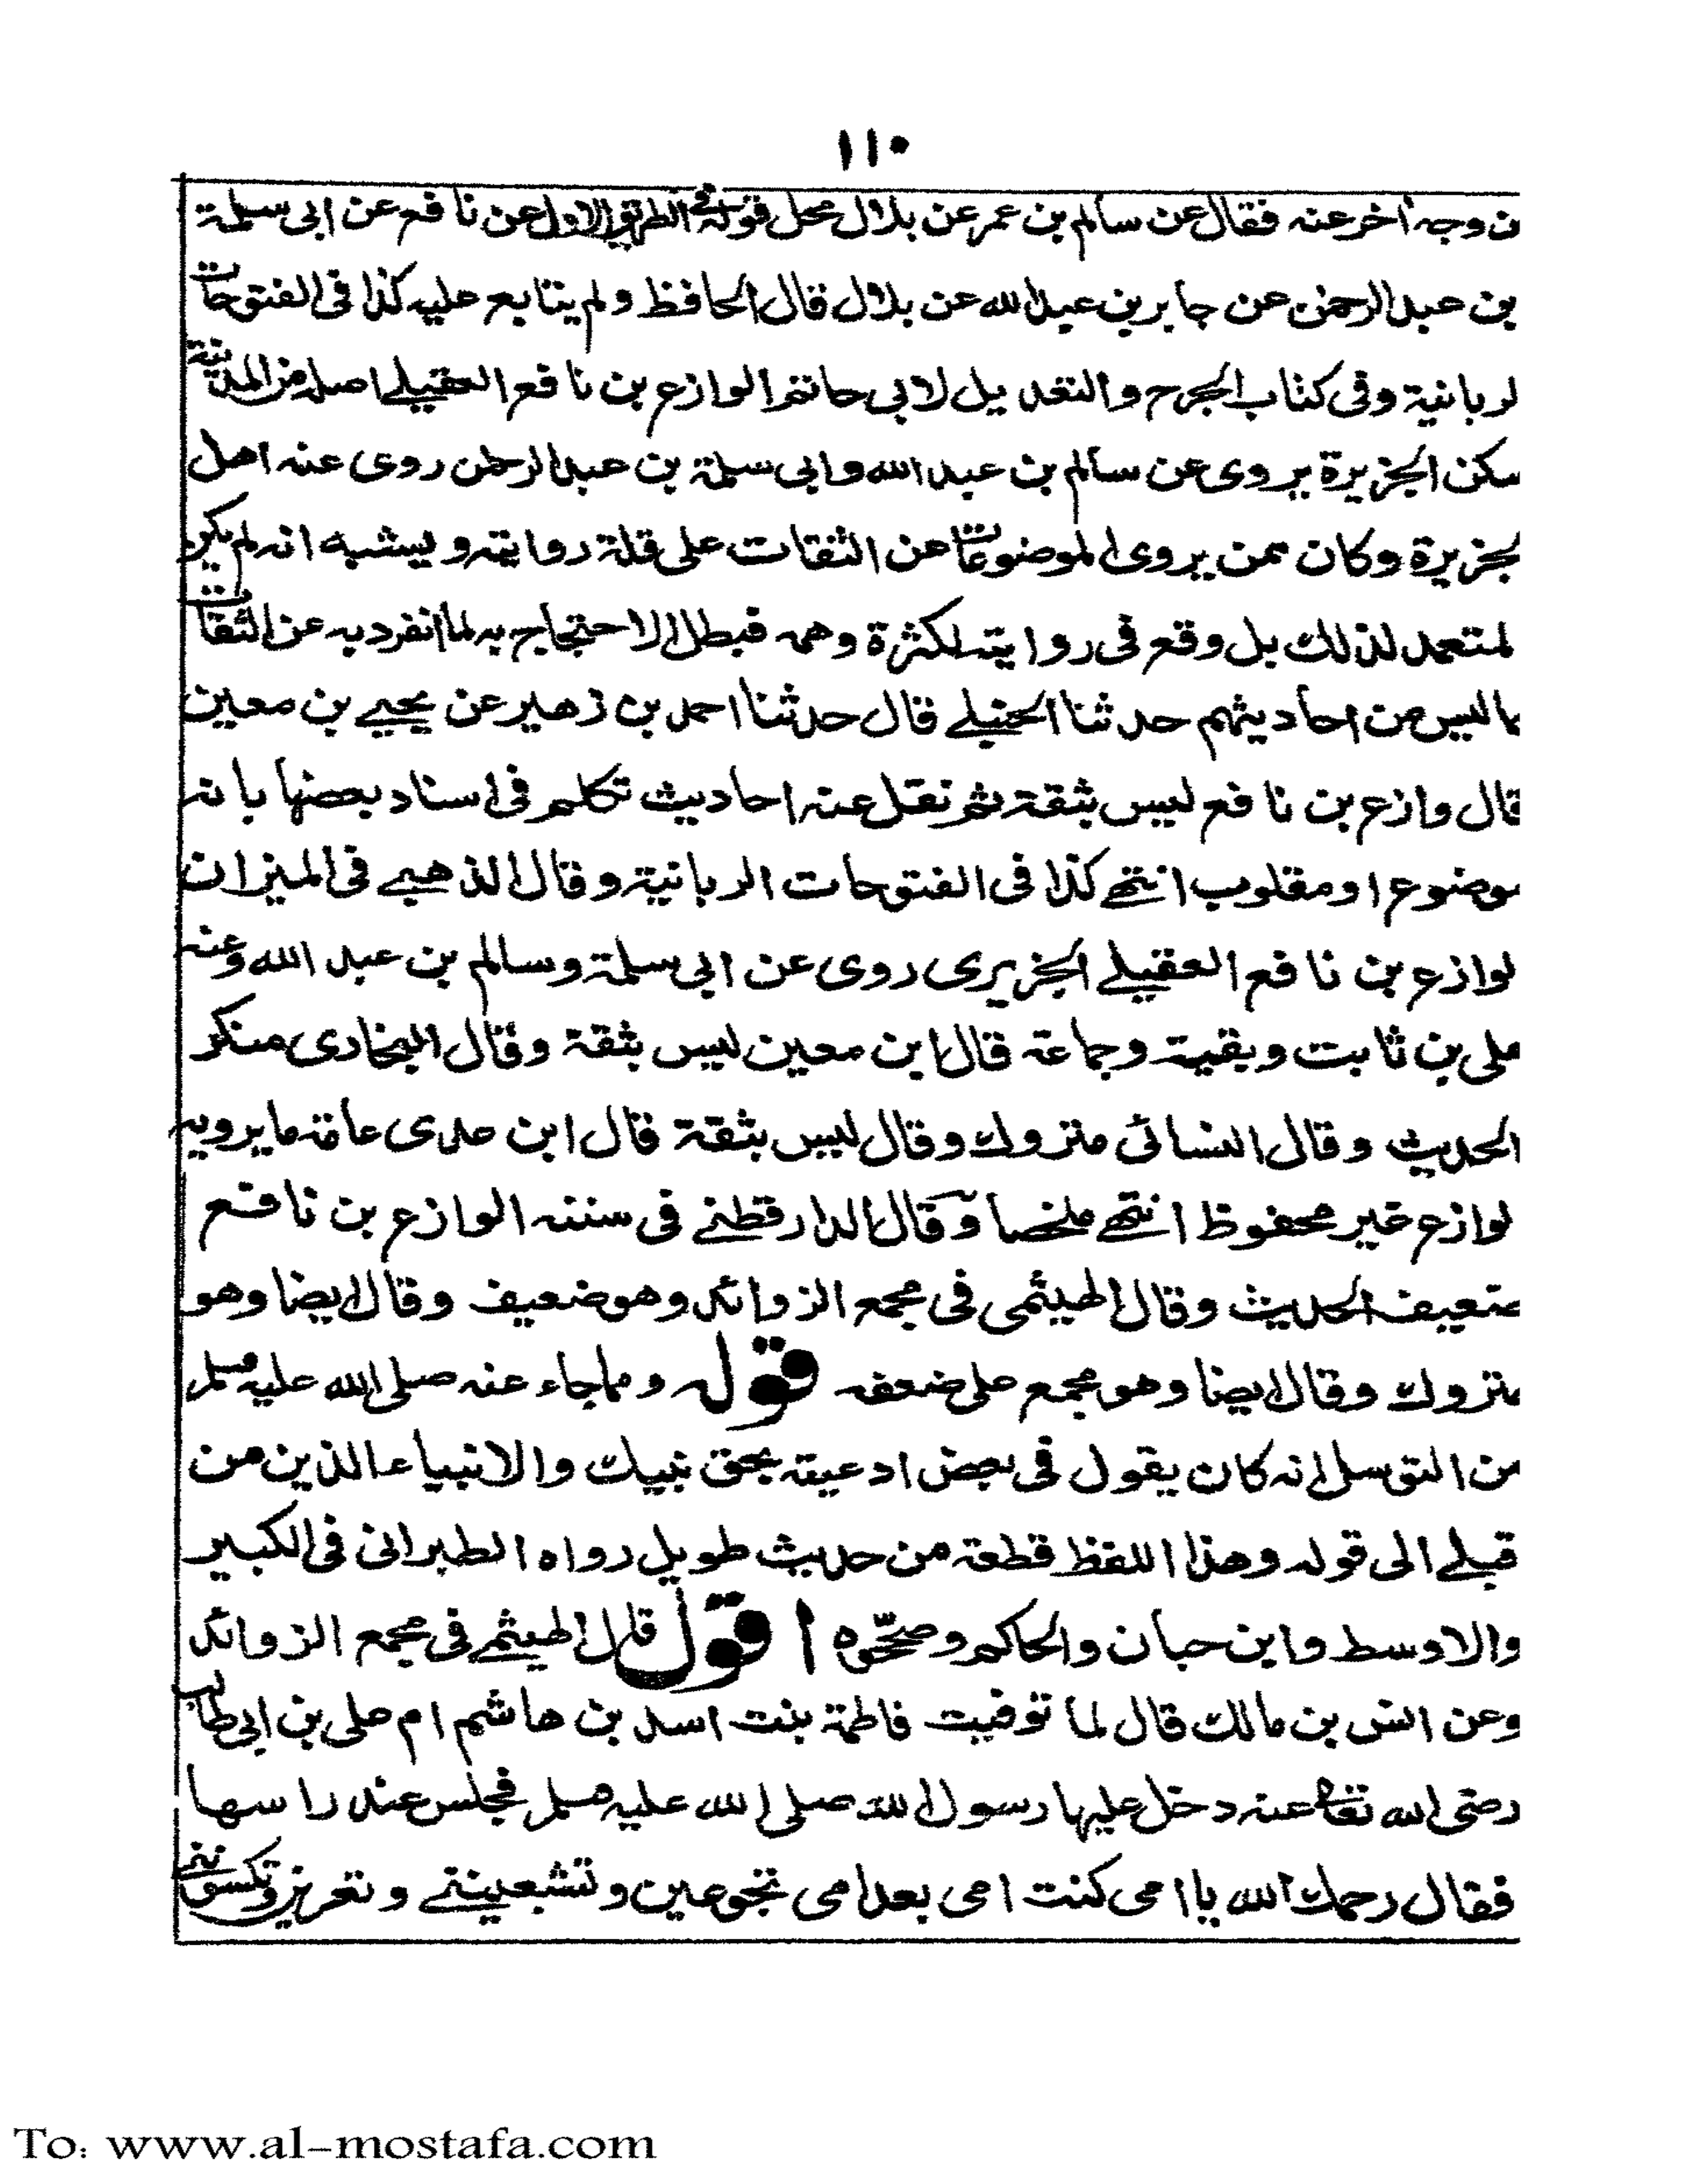 ١١٠
ن وجه آخر عنه فقال عن سالم بن عمر عن بلال محل قوله في الطريق الاول عن نافع عن ابى سلمة
بن عبد الرحمن عن جابر بن عبد الله عن بلال قال الحافظ ولم يتابع عليه كذا فى الفتوحات
لربانية وفى كتاب الجرح والتعديل لابي حاتم الوازع بن نافع العقيلے اصله من المدينة
سكن الجزيرة يروى عن سالم بن عبد الله وابى سلمة بن عبد الرحمن روى عنه اهل
لجزيرة وكان ممن يروى الموضوعات عن الثقات على قلة روايته ويشبه انه لم يكن
لمتعمد لذلك بل وقع فى روايته لكثرة وهمه فبطل الاحتجاج به لما انفرد به عن الثقات
بما ليس من احاديثهم حدثنا الحنبلے قال حدثنا احمد بن زهير عن يحيے بن معين
قال وازع بن نافع ليس بثقة ثم نقل عنه احاديث تكلم فى اسناد بعضها بانه
موضوع او مقلوب انتهے كذا فى الفتوحات الربانية وقال الذهبے فى الميزان
لوازع بن نافع العقيلے الجزيرى روى عن ابى سلمة وسالم بن عبد الله وعنه
على بن ثابت وبقية وجماعة قال ابن معين ليس بثقة وقال البخارى منكر
الحديث وقال النسائى متروك وقال ليس بثقة قال ابن عدى عامة ما يرويه
لوازع غير محفوظ انتهے ملخصا وقال الدارقطنے فى سننه الوازع بن نافع
ضعيف الحديث وقال الهيثمى فى مجمع الزوائد وهو ضعيف وقال ايضا وهو
متروك وقال ايضا وهو مجمع على ضعفه قوله ومما جاء عنه صلى الله عليه وسلم
من التوسل انه كان يقول فى بعض ادعيته بحق نبيك والانبياء الذين من
قبلے الى قوله وهذا اللفظ قطعة من حديث طويل رواه الطبرانى فى الكبير
والاوسط وابن حبان والحاكم وصححوه اقول قال الهيثمے فى مجمع الزوائد
وعن انس بن مالك قال لما توفيت فاطمة بنت اسد بن هاشم ام على بن ابى طالب
رضى الله تعالى عنه دخل عليها رسول الله صلى الله عليه وسلم فجلس عند راسها
فقال رحمك الله يا امى كنت امى بعد امى تجوعين وتشبعينے وتعرين وتكسونے
To: www.al-mostafa.com